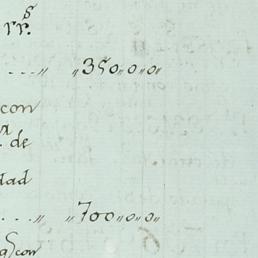 rr.s
....,, ,,350,,0,,0,,
con
de
dad
....,, ,,700,,0,,0,,
con